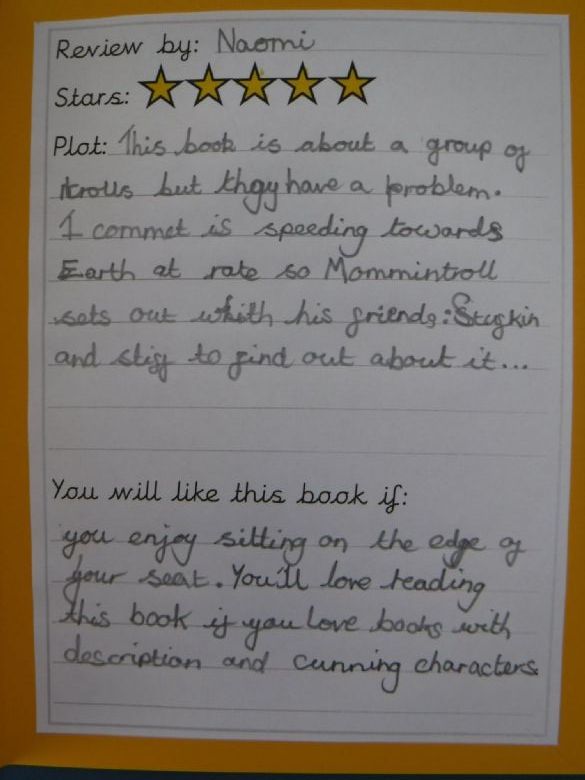 Review by: Naomi
Stars:
Plot: This book is about a group of
trolls but thgy have a problem.
I commet is speeding towards
Earth at rate so Mommintroll
sets out whith his friends: Stugkin
and stig to find out about it...
You will like this book if:
you enjoy sitting on the edge of
your seat. You'll love reading
this book if you love books with
description and cunning characters